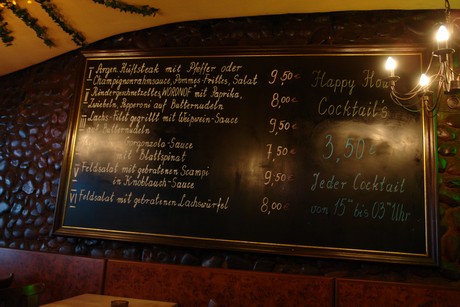 I Argen. Hüftsteak mit Pfeffer oder
Champignonrahmsauce, Pommes-Frites, Salat 9,50 €
II Rindergeschnetzeltes, WORDNOF mit Paprika,
Zwiebeln, Pepperoni auf Butternudeln 8,00 €
III Lachs-Filet gegrillt mit Weißwein-Sauce
auf Butternudeln 9,50 €
Gorgonzola-Sauce
mit Blattspinat 7,50 €
V Feldsalat mit gebratenen Scampi
in Knoblauch-Sauce 9,50 €
VI Feldsalat mit gebratenen Lachswürfel 8,00 €
Happy Hour
Cocktail's
3,50 €
Jeder Cocktail
von 15⁰⁰ bis 03⁰⁰ Uhr